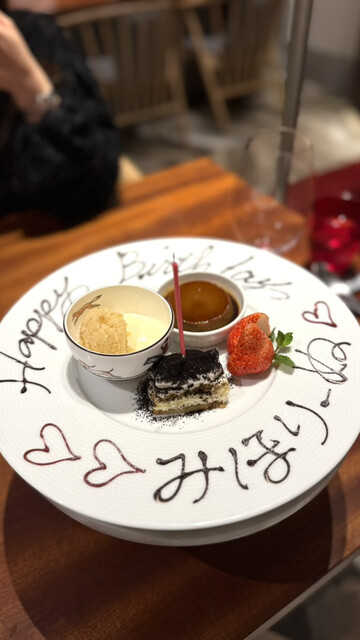 Happy Birthday
みほりーぬ